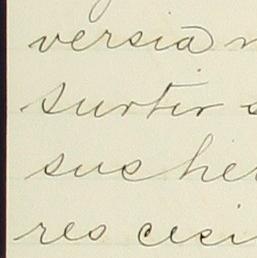 versia
surtir
sus her
res cesi